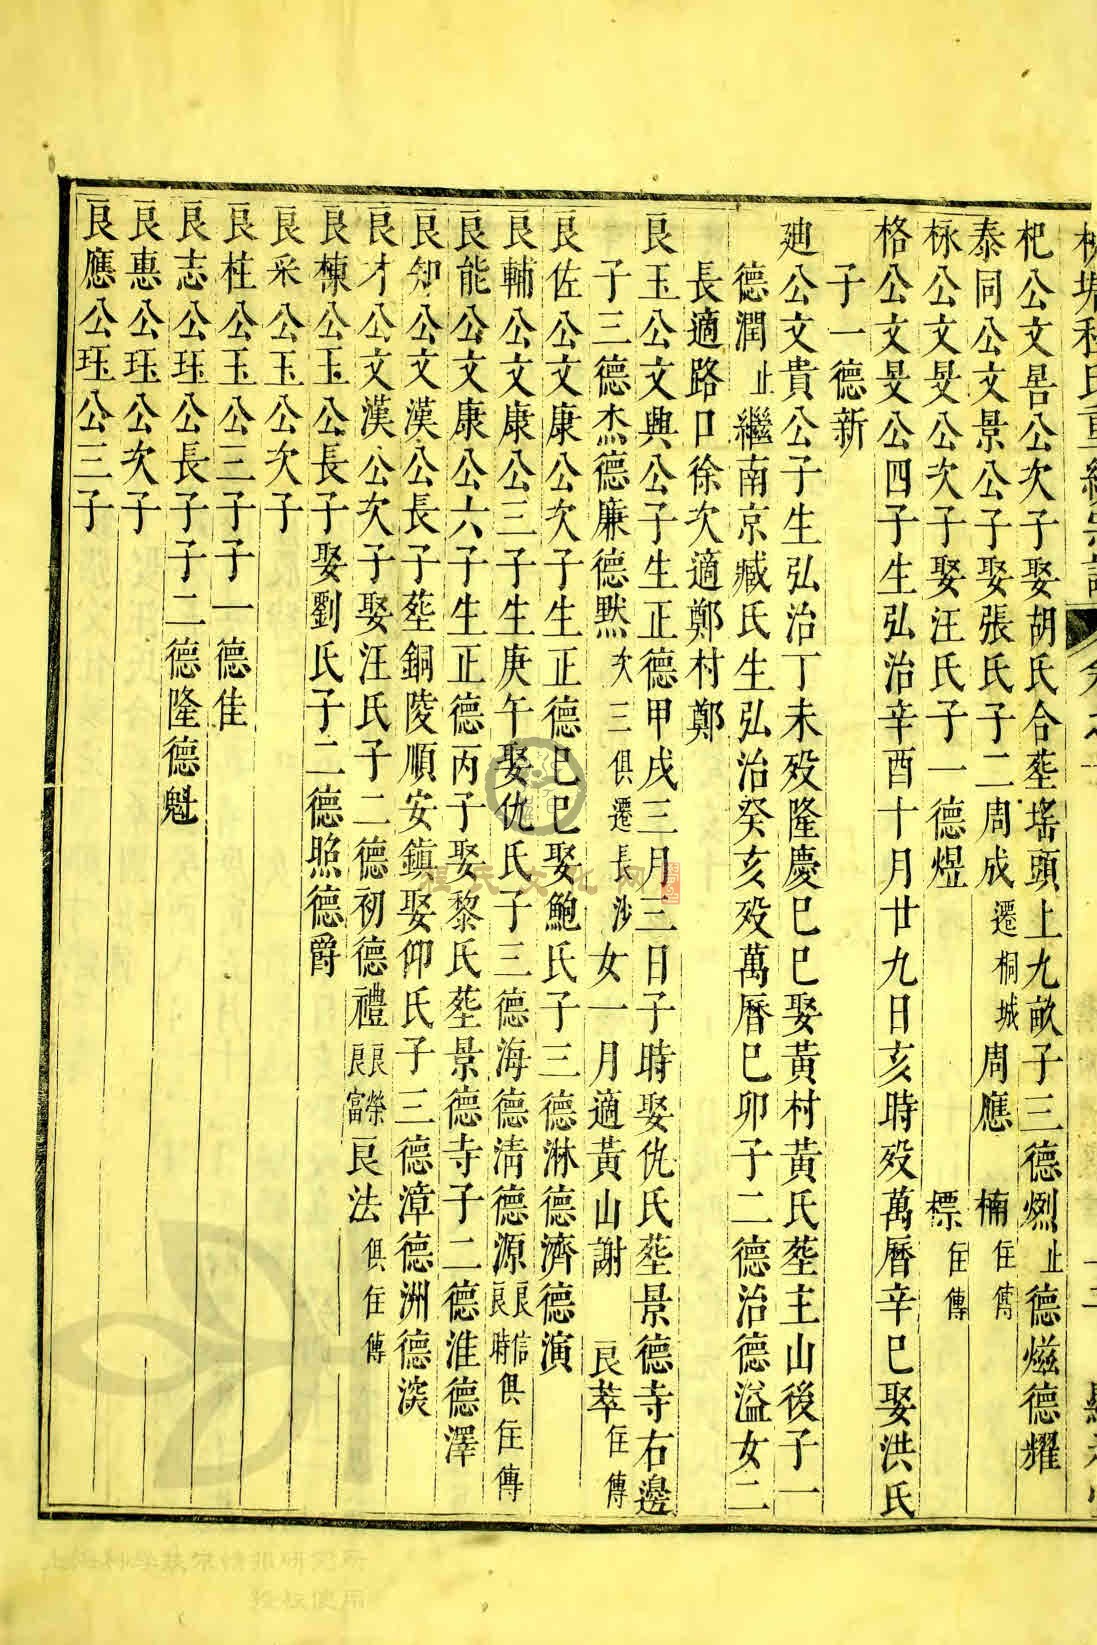 杞公文㫤公次子娶胡氏合塟瑤頭上九畝子三德爁止德燚德耀
泰同公文景公子娶張氏子二周成遷桐城周應 楠住傳
栐公文旻公次子娶汪氏子一德煜 標住傳
格公文旻公四子生弘治辛酉十月廿九日亥時歿萬曆辛巳娶洪氏
子一德新
廸公文貴公子生弘治丁未歿隆慶己巳娶黃村黃氏塟主山後子一
德潤止繼南京臧氏生弘治癸亥歿萬曆己卯子二德治德溢女二
長適路口徐次適鄭村鄭
良玉公文興公子生正德甲戌三月三日子時娶仇氏塟景德寺右邊
子三德杰德廉德默次三俱遷長沙女一月適黃山謝 良萃住傳
良佐公文康公次子生正德己巳娶鮑氏子三德淋德濟德演
良輔公文康公三子生庚午娶仇氏子三德海德清德源良信良時俱住傳
良能公文康公六子生正德丙子娶黎氏塟景德寺子二德淮德澤
良知公文漢公長子塟銅陵順安鎮娶仰氏子三德漳德洲德淡
良才公文漢公次子娶汪氏子二德初德禮良榮良富良法俱住傳
良棟公玉公長子娶劉氏子二德照德爵
良采公玉公次子
良柱公玉公三子子一德佳
良志公珏公長子子二德隆德魁
良惠公珏公次子
良應公珏公三子
程氏文化网
上海科学技术情报研究所
授权使用